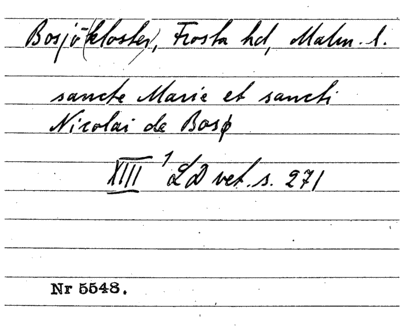 Bosjö(kloster), Frosta hd, Malm. l.
sancte Marie et sancti
Nicolai de Bosø
XIII 1 LD vet. s. 271
Nr 5548.